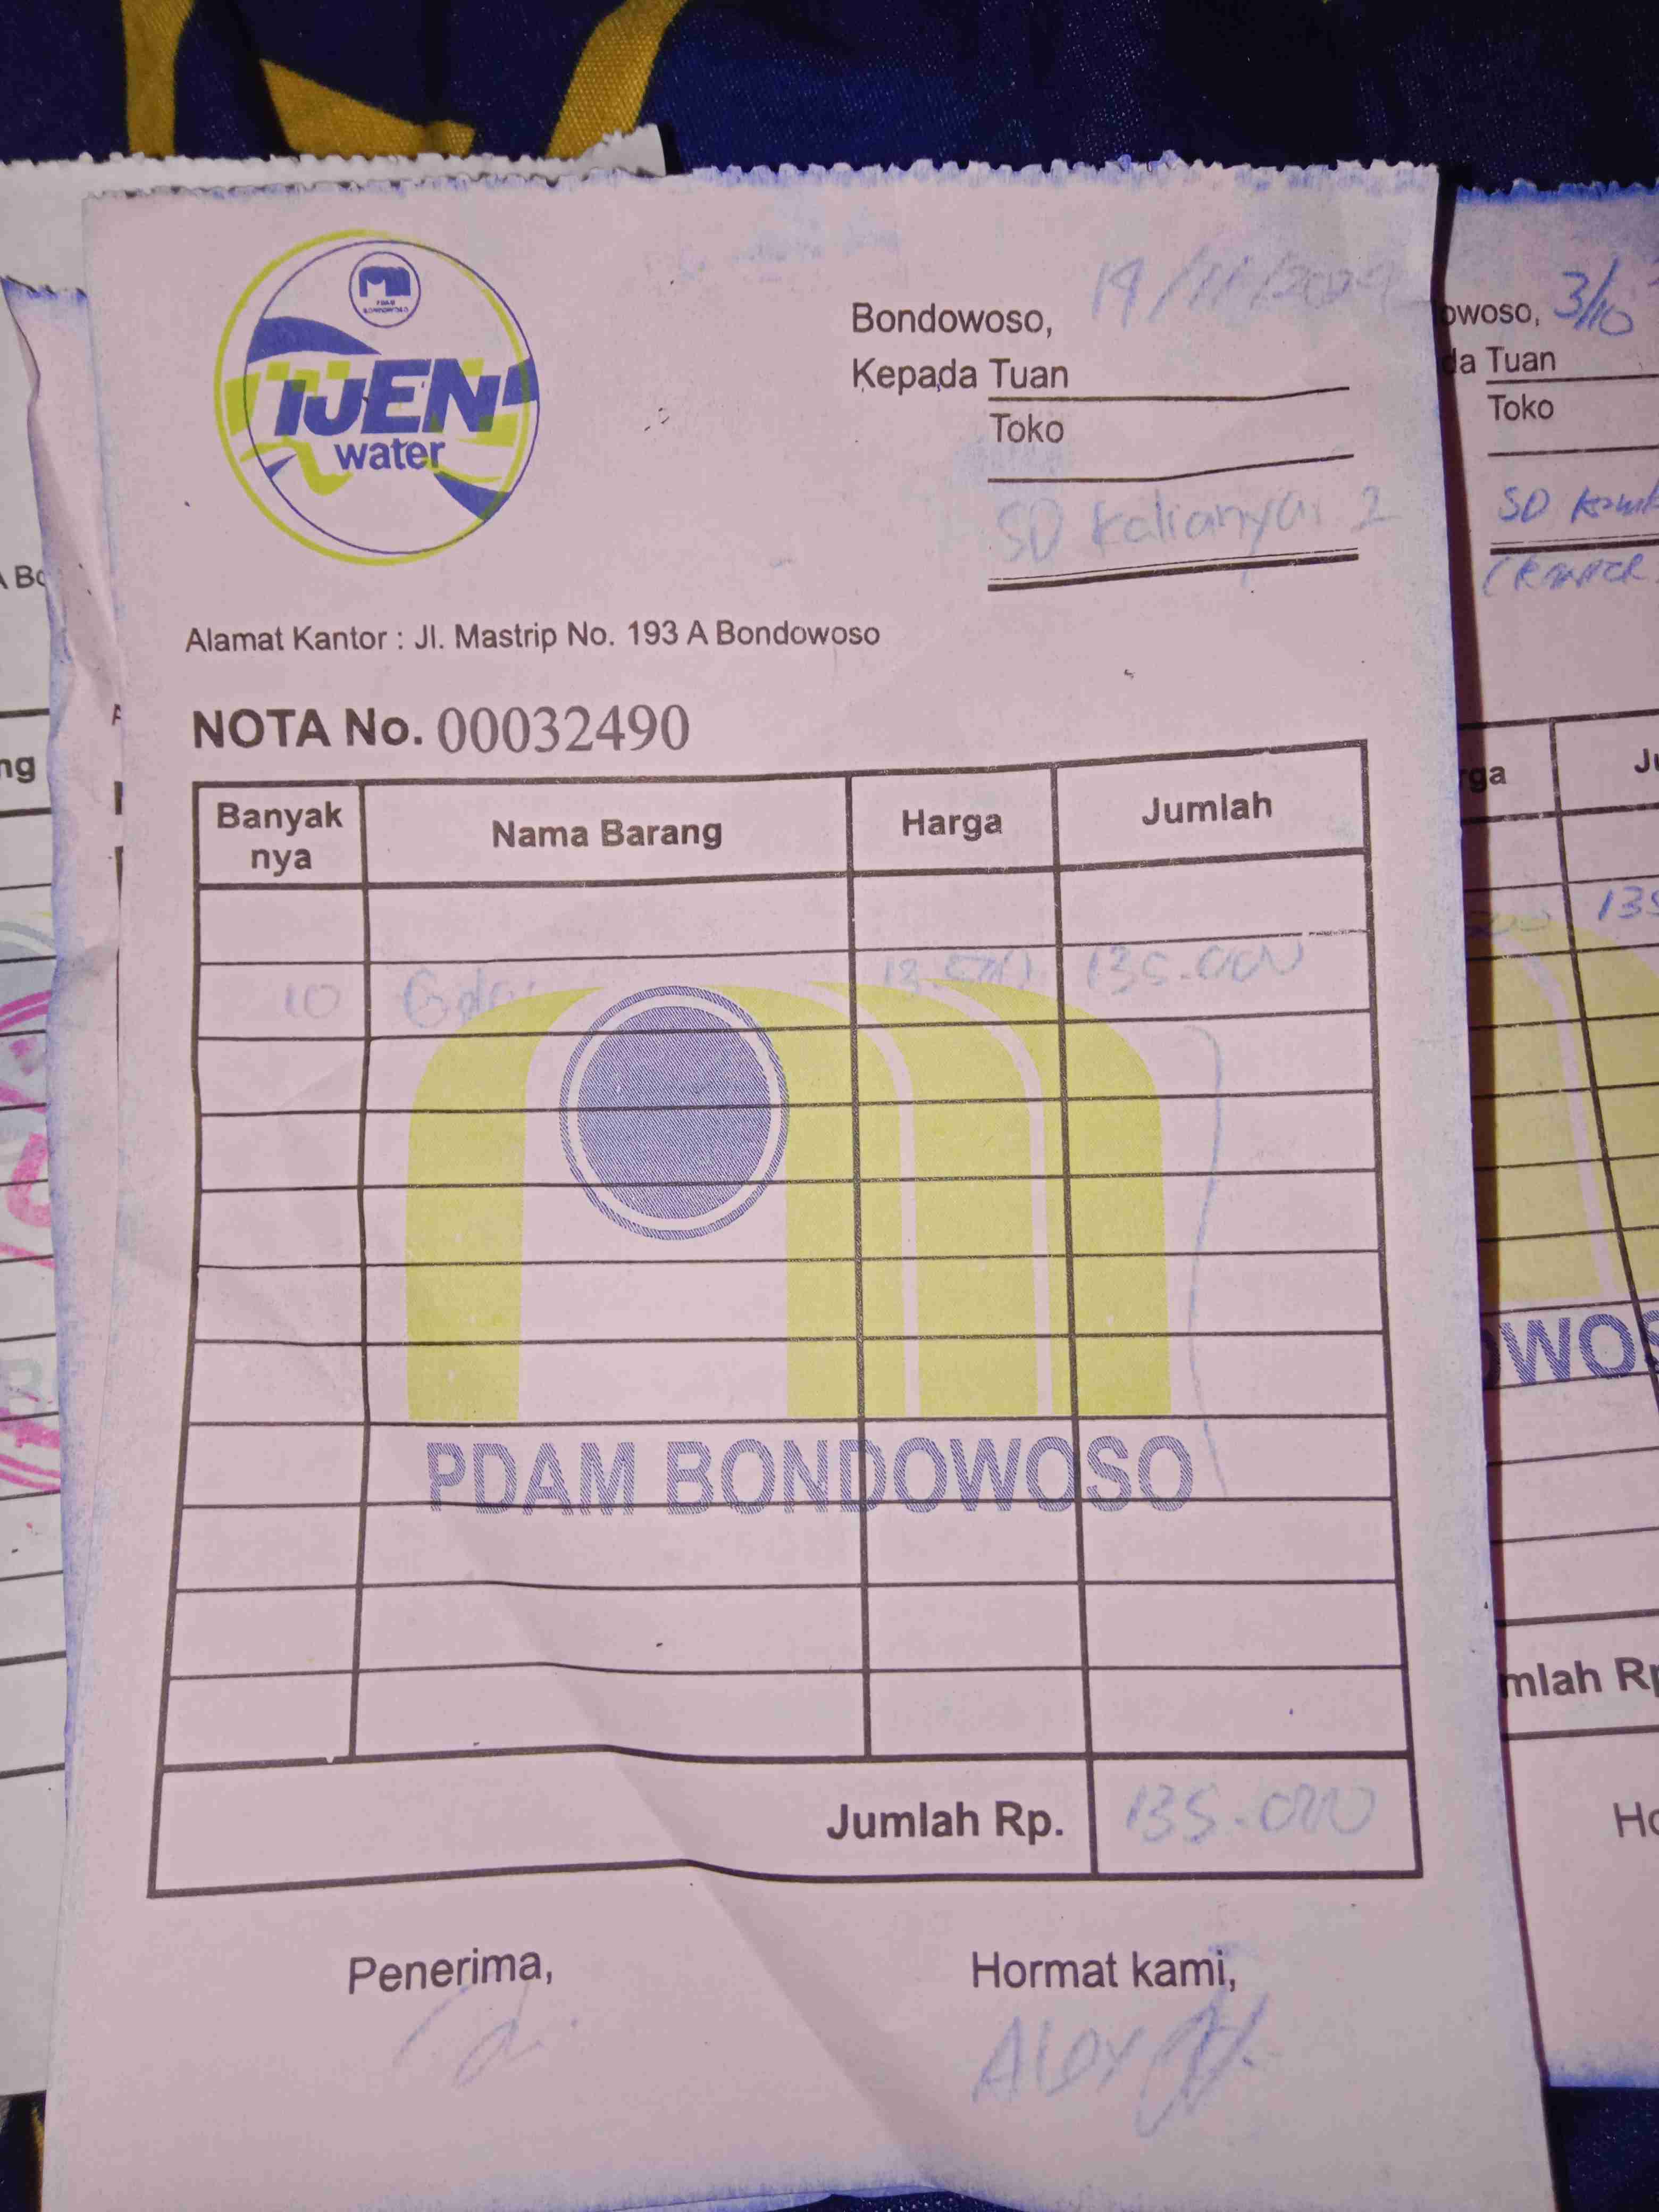 PDAM
BONDOWOSO
IJEN
water
Bondowoso, 19/11/2024
Kepada Tuan
Toko
SD Kalianyar 2
Alamat Kantor : Jl. Mastrip No. 193 A Bondowoso
NOTA No. 00032490
Banyak nya Nama Barang Harga Jumlah
10 13.500 135.000
PDAM BONDOWOSO
Jumlah Rp. 135.000
Penerima, Hormat kami,
Alex
owoso, 3/10
da Tuan
Toko
SD
rga Ju
135
OWOS
mlah Rp
Ho
A Bo
ng